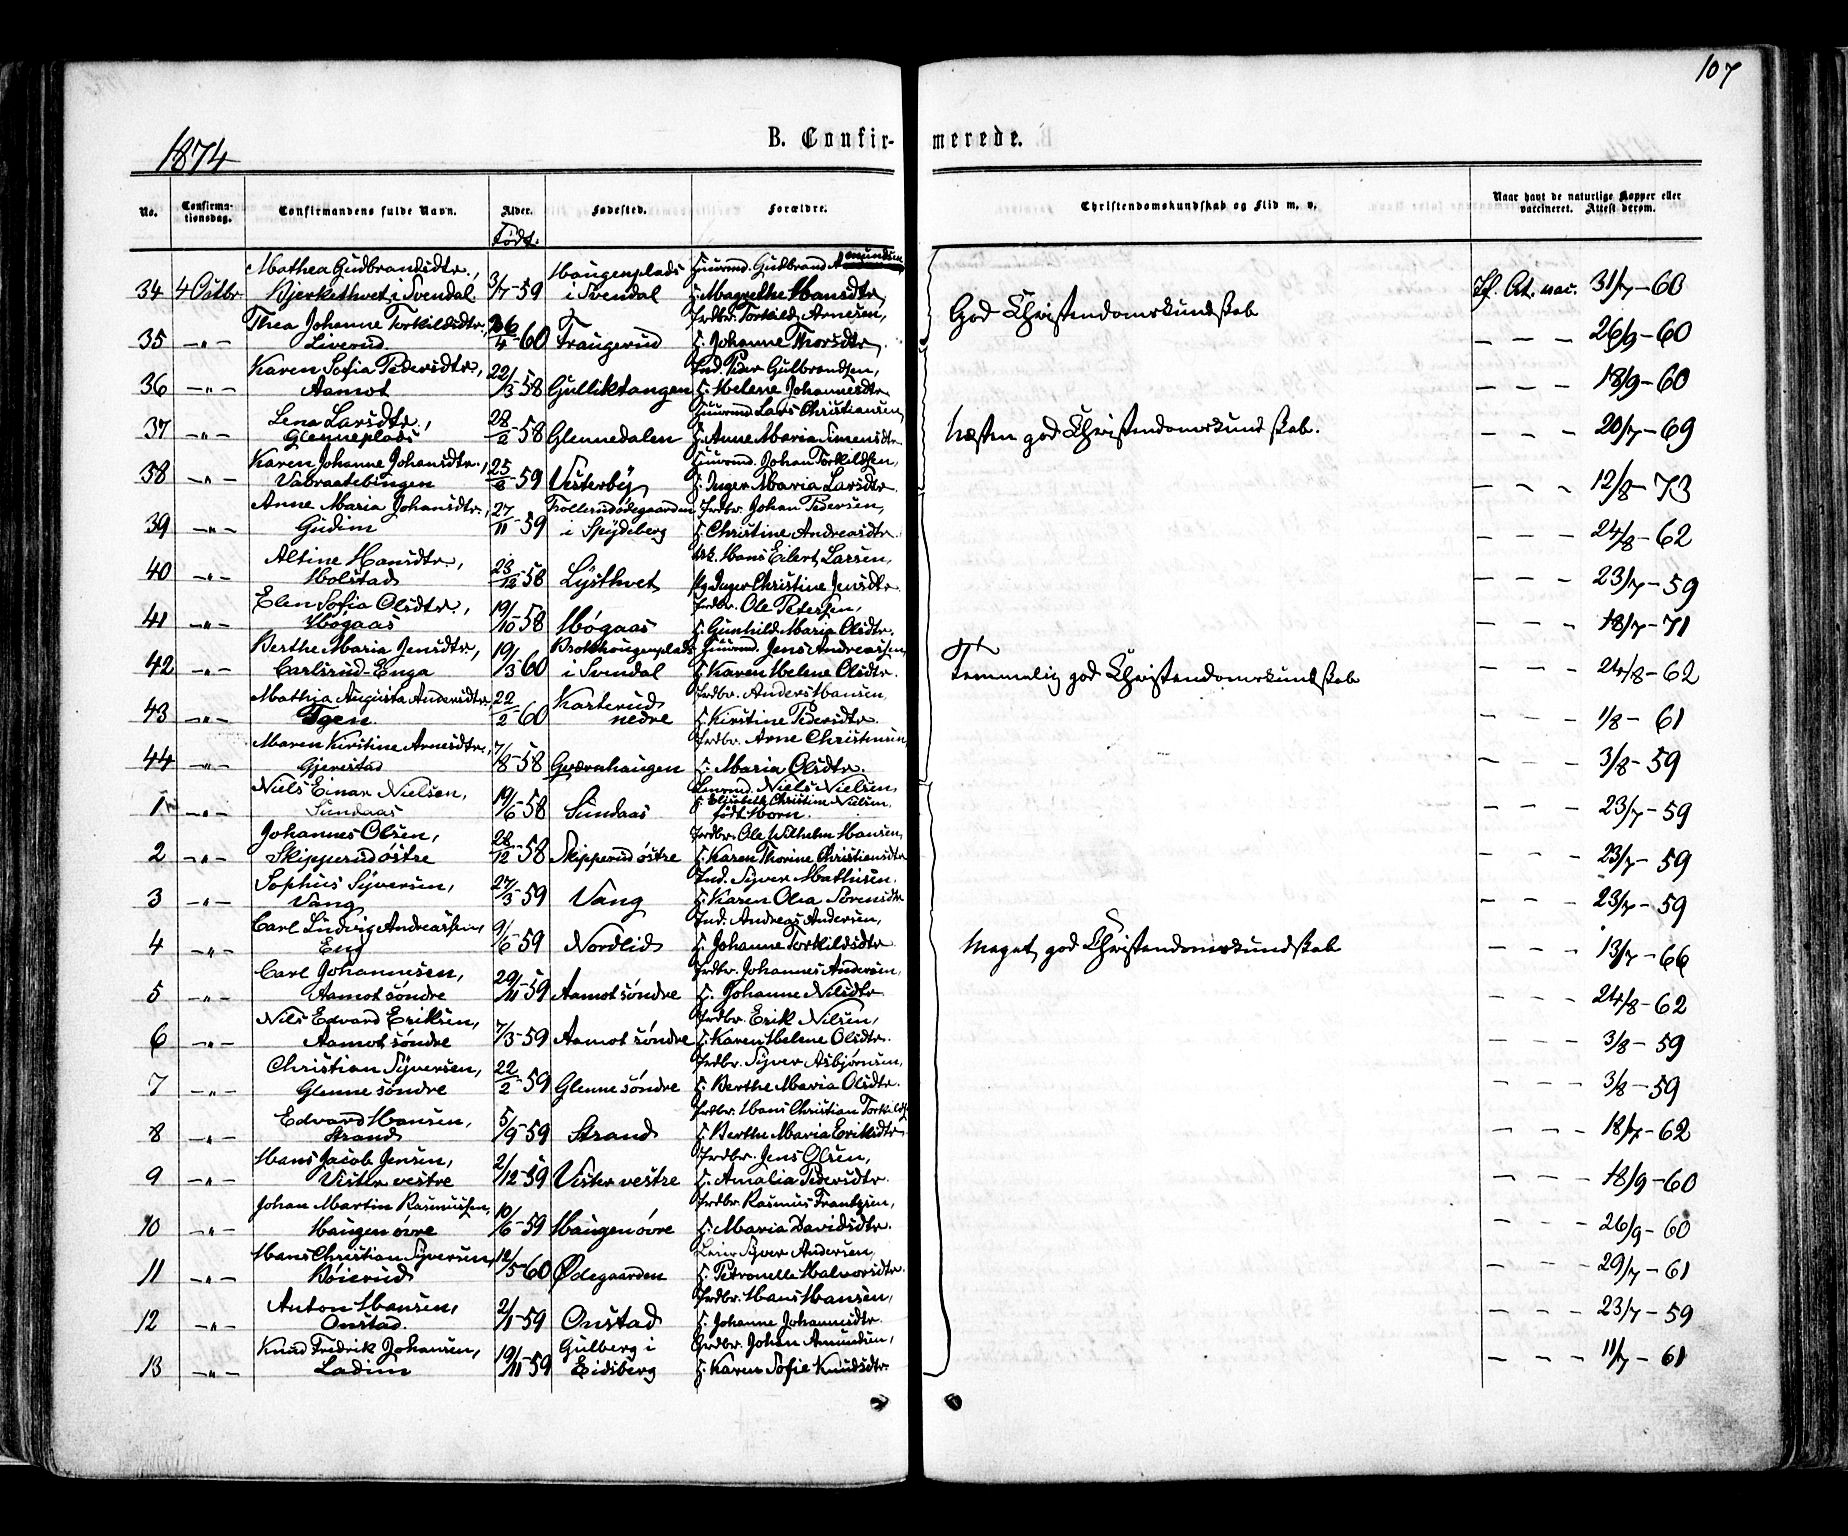 107
1874
B. Confirmerede.
No. Confirmationsdag. Confirmandens fulde Navn. Alder. Fødested. Forældre. Christendomskundskab og Flid m. v. Naar havt de naturlige Kopper eller vaccineret. Attest derom.
Født:
Mathea Gudbrandsdtr., Haugenplads Huusmd. Gudbrand Amundsen
34 4 Octbr. Bjerkethvet i Svendal 3/7-59 i Svendal H. Magrethe Hansdtr. If. At. vac. 31/7-60
God Christendomskundskab
Thea Johanne Torkildsdtr., Torkild Arnesen,
35 -"- Liverud 26/4-60 Traugerud H. Johanne Thorsdtr. - - - 26/9-60
Karen Sofia Pedersdtr., Ind. Peder Gulbrandsen,
36 -"- Aamot 22/3-58 Gulliktangen H. Helene Johannesdtr. - - - 18/9-60
Lena Larsdtr., Huusmd. Lars Christiansen,
37 -"- Glenneplads 28/2-58 Glennedalen H. Anne Maria Simensdtr. Næsten god Christendomskundskab. - - - 20/7-69
Karen Johanne Johansdtr., Huusmd. Johan Torkildsen,
38 -"- Vabraatebingen 25/6-59 Visterby H. Inger Maria Larsdtr. - - - 12/8-73
Anne Maria Johansdtr., Trollerudødegaarden Johan Pedersen,
39 -"- Gudim 27/11-59 i Spydeberg H. Christine Andreasdtr. - - - 24/8-62
Altine Hansdtr., Hans Eilert Larsen,
40 -"- Holstad 23/12-58 Lysthvet Pg Inger Christine Jensdtr. - - - 23/7-59
Elen Sofia Olsdtr., Ole Petersen,
41 -"- Høgaas 19/10-58 Høgaas H. Gunhild Maria Olsdtr. - - - 18/7-71
Berthe Maria Jensdtr., Brotthougenplads Huusmd. Jens Andreassen,
42 -"- Carlsrud-Enga 19/3-60 i Svendal H. Karen Helene Olsdtr. Temmelig god Christendomskundskab - - - 24/8-62
Mathia Augusta Andersdtr. Karterud Anders Hansen,
43 -"- Tgen. 22/2-60 nedre H. Kirstine Pedersdtr. - - - 1/8-61
Maren Kirstine Arnesdtr., Arne Christensen
44 -"- Gjerestad 7/8-58 Gværnhaugen H. Maria Olsdtr. - - - 3/8-59
Niels Einar Nielsen, Niels Nielsen,
H. Elisabeth Christine Nielsen
1 -"- Sundaas 19/6-58 Sundaas født Horn. - - - 23/7-59
Johannes Olsen, Ole Wilhelm Hansen,
2 -"- Skipperud østre 28/12-58 Skipperud østre H. Karen Thorine Christiansdtr. - - - 23/7-59
Sophus Syversen, Ind. Syver Mathisen,
3 -"- Vang 27/3-59 Vang H. Karen Olea Sørensdtr. - - - 23/7-59
Carl Ludvig Andreassen, Ind. Andreas Andersen,
4 -"- Eng 9/6-59 Nordlid H. Johanne Torkildsdtr. Meget god Christendomskundskab - - - 13/7-66
Carl Johannesen, Johannes Andersen,
5 -"- Aamot søndre 29/11-59 Aamot søndre H. Johanne Nilsdtr. - - - 24/8-62
Nils Edvard Eriksen, Erik Nilsen,
6 -"- Aamot søndre 7/3-59 Aamot søndre H. Karen Helene Olsdtr. - - - 3/8-59
Christian Syversen, Syver Asbjørnsen,
7 -"- Glenne søndre 22/2-59 Glenne søndre H. Berthe Maria Olsdtr. - - - 3/8-59
Edvard Hansen, Hans Christian Torkilds.
8 -"- Strand 5/9-59 Strand H. Berthe Maria Eriksdtr. - - - 18/7-62
Hans Jacob Jensen, Jens Olsen,
9 -"- Vister vestre 2/12-59 Vister vestre H. Amalia Pedersdtr. - - - 18/9-60
Johan Martin Rasmussen, Rasmus Frantzen,
10 -"- Haugen øvre 10/6-59 Haugen øvre H. Maria Davidsdtr. - - - 26/9-60
Hans Christian Syversen, Leier Syver Andersen,
11 -"- Bøierud 12/5-60 Ødegaarden H. Petronelle Halvorsdtr. - - - 29/7-61
Anton Hansen, Hans Hansen,
12 -"- Onstad. 2/1-59 Onstad H. Johanne Johannesdtr. - - - 23/7-59
Knud Fredrik Johansen, Gulberg i Johan Amundsen,
13 -"- Ladim 19/11-59 Eidsberg H. Karen Sofie Knudsdtr. - - - 11/7-61